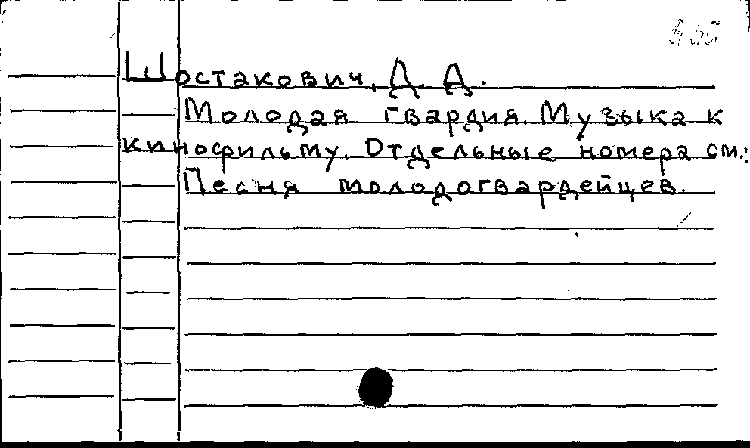 Шостакович, Д. Д.
Молодая гвардия. Музыка к
кинофильму. Отдельные номера см.:
Песня молодогвардейцев.